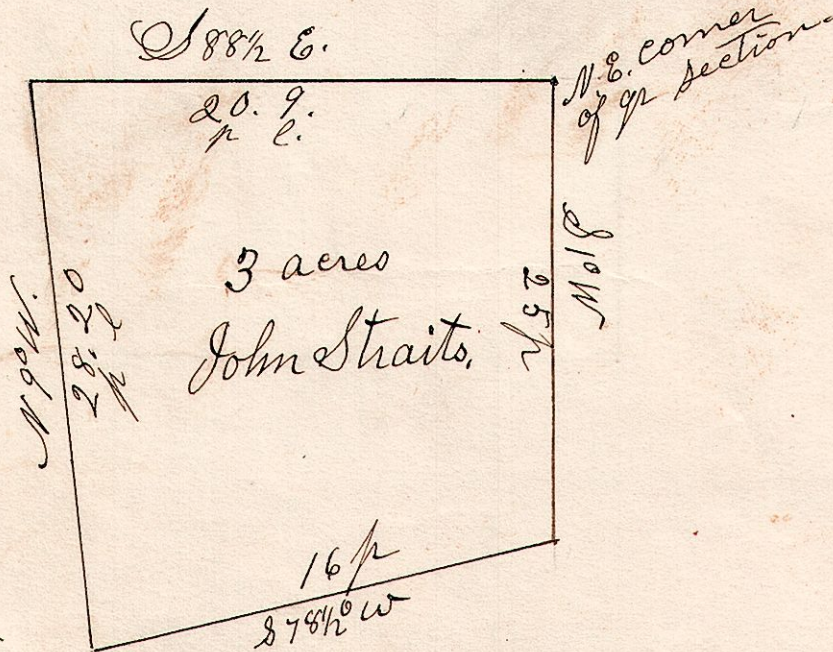 S 88½ E.
N.E. corner
of qr section.
20. 9.
p l.
3 acres
John Straits.
N 6° W.
28. 20
p l
25 p
S 1° W
16 p
S 78½° W